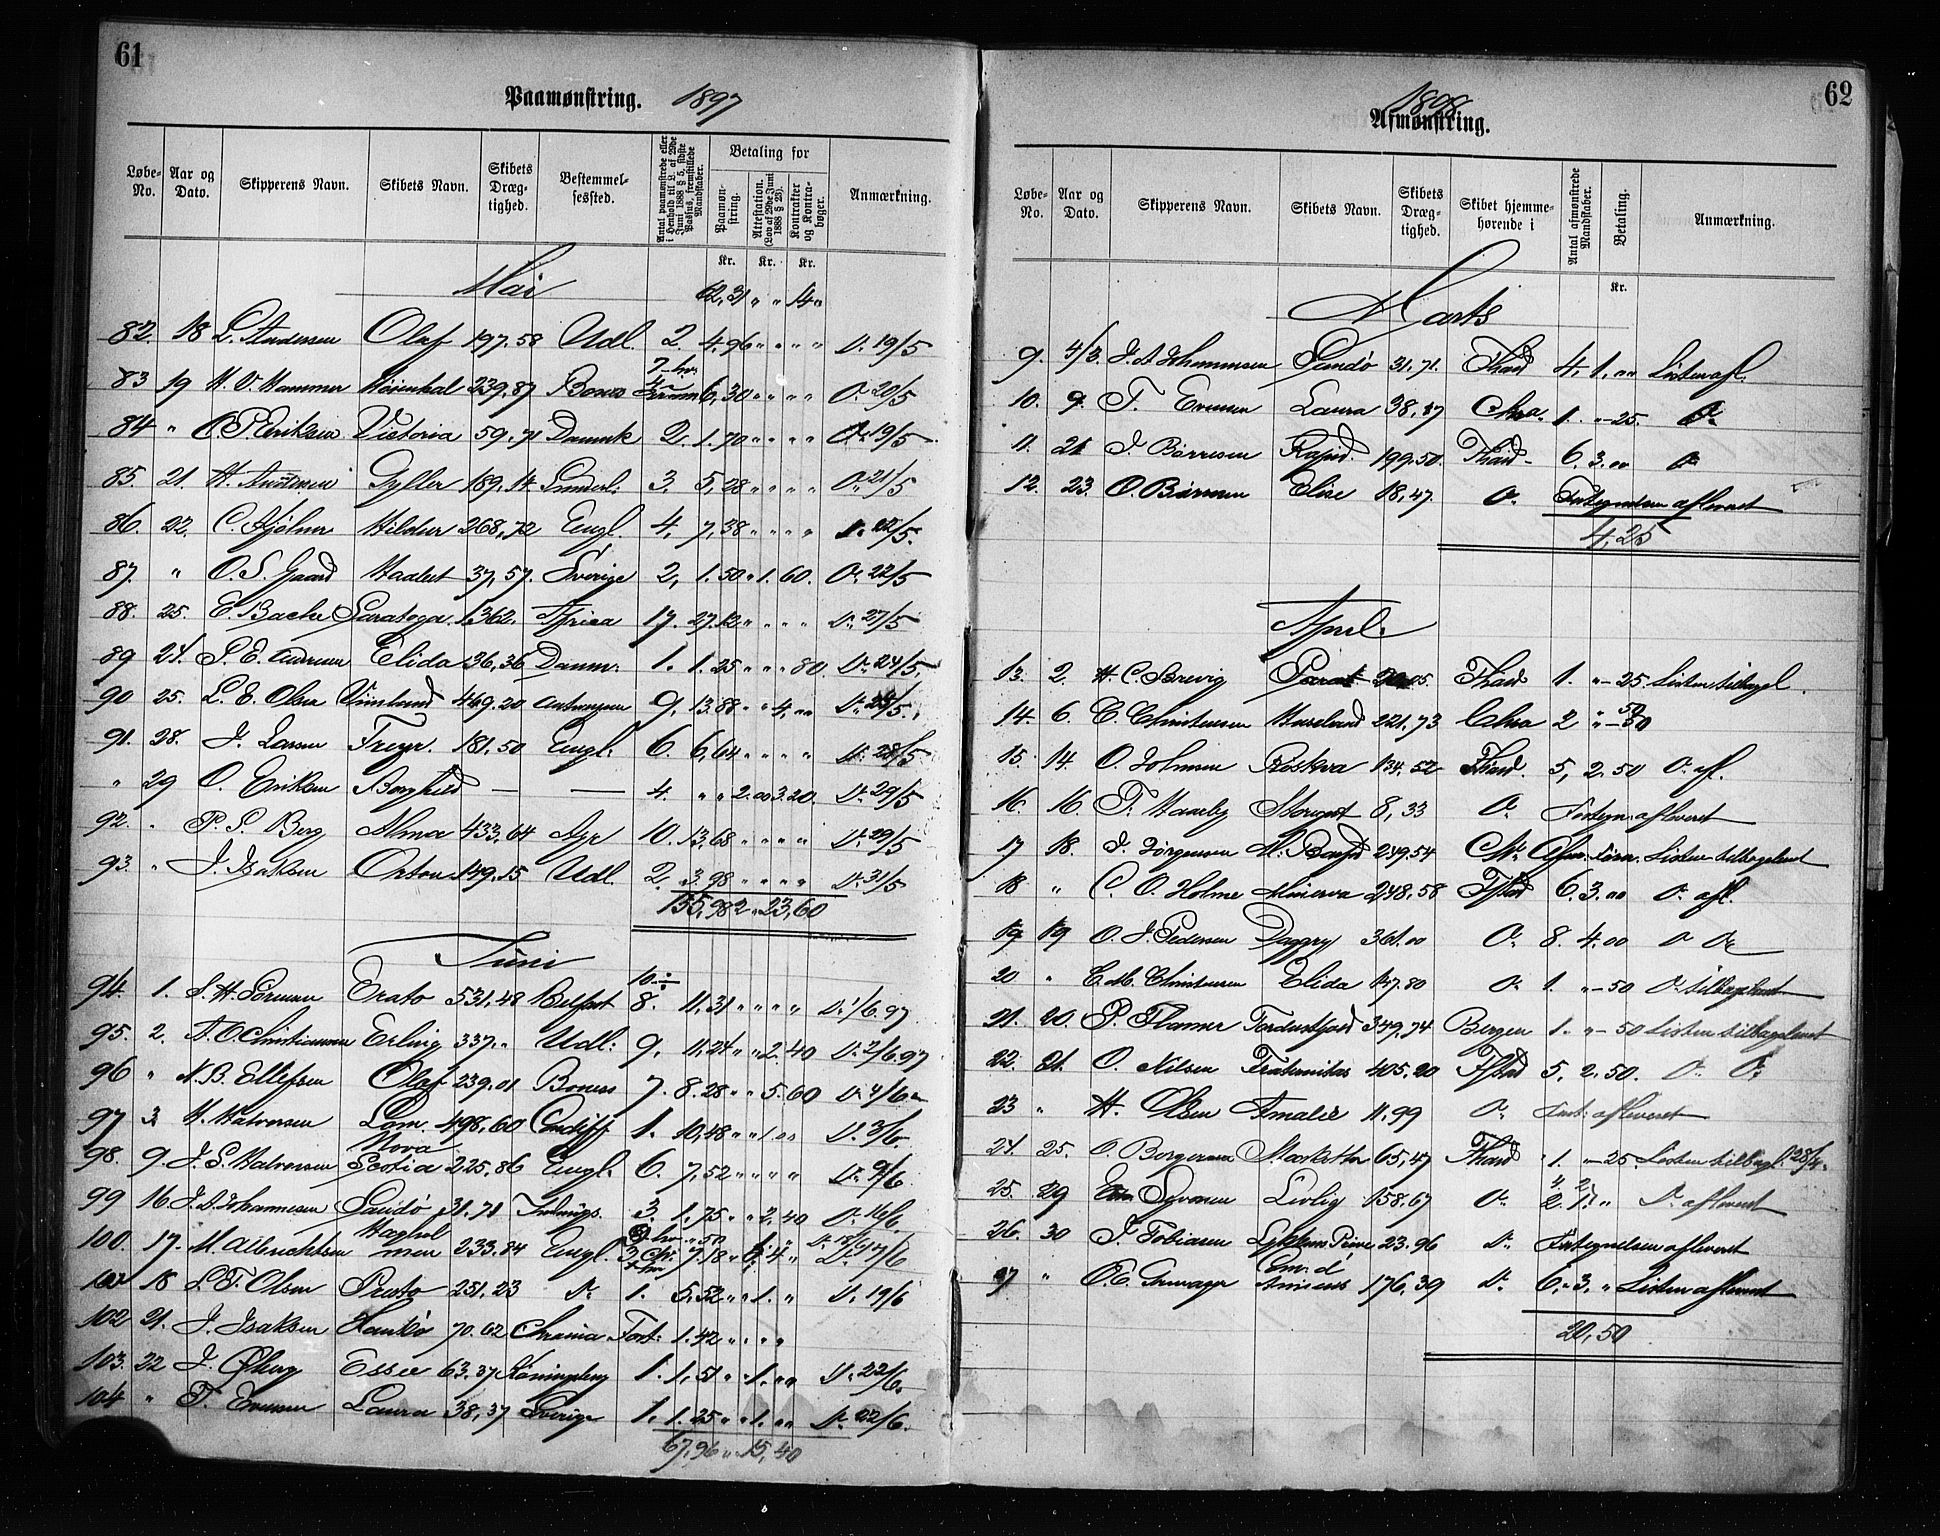 61
Paamønstring. 1897
Løbe-No. Aar og Dato. Skipperens Navn. Skibets Navn. Skibets Dræg-tighed. Bestemmel-sessted. Antal paamønstrede eller i Henhold til L. af 29de Juni 1888 § 5, sidste Passus, fremstillede Mandskaber. Betaling for Paamøn-string. Attestation. (Lov af 29de Juni 1888 § 23). Kontrakter og Kontra-bøger. Anmærkning.
Kr. Kr. Kr.
Mai 62,31 " " 14 "
82. 18 L. Andersen Olaf 197.58 Udl. 2. 4.96 " " " " D. 19/5
83 19 H. O. Hammer 239,87 Boness 6,30 " " " " D. 20/5
84 " O P. Eriksen Victoria 59.71 Danmk 2. 1.70 " " " " D. 19/5
85. 21. H. Gyller 189.14 3. 5,28 " " " " D. 21/5
86. 22. C. Hjølner Hildur 268,72 Engl. 4, 7,38 " " " " D. 22/5.
87 " O. S. Gaard Haabet 37,57 Sverige 2, 1.50 " 1.60. D. 22/5
88. 25. E. Bache Saratoga 1362. Africa 17. 27.12 " " " " D. 27/5
89 24. S. E. Elida 36,36 Danm. 1. 1.25 " " " 80. D. 24/5.
90 25. L. E. Olsen Vinland 469.20 Antwerpen 9, 13.88 " " 4, " " D. /5.
91. 28. J. Larsen Freyr. 181.50 Engl. 6. 6,64 " " " " D. 28/5
" 29 O. Eriksen Borghild — — 4. " " 2.00 3.20. D. 29/5
92. " P. S. Berg Alma 433.64 Ayr 10. 13,68 " " " " D. 29/5
93. " J. Isaksen Orton 149.15 Udl. 2. 3,98 " " " " D. 31/5
155,98 2 " 23,60
Juni
94. 1. S. H. Sørensen Erato 531.48 Belfast 8. 11,31 " " " " D. 1/6.97
95. 2. A. O. Christiansen Erling 337. " Udl. 9. 11,24 " " 2.40 D. 2/6.97
96 " N. B. Ellefsen Olaf 239.01 Boness 7. 8.28 " " 5.60 D. 4/6
97 3 H. Halvorsen Lom. 498.60 Cardiff 1. 10,48 " " 1.00 D. 3/6.
98. 9. J. S. Halvorsen Nova Scotia 225.86 Engl. 6. 7,52 " " " " D. 9/6
99 16. J. A. Johannesen Sandö 31.71 3. 1.75 " " 2.40 D. 16/6.
100. 17. M. Albrechtsen 233.84 Engl. 7.18 " 4 " D. 17/6
101 18 S. F. Olsen Presto 251.23 D. 1. 5,52 " " 1. " D. 19/6
102 21. J. Isaksen Hankö 70.62 Chrania Fort. 1.42 " " " "
103. 22 J. Öberg Essie 63.37 Köningsberg 1. 1,51 " 1. " " D. 22/6.
104 " T. Evensen Laura 38,37 Sverige 1. 1.25 " " 1. " " D. 22/6.
67,96 " " 15,40
62
1898
Afmønstring.
Løbe-No. Aar og Dato. Skipperens Navn. Skibets Navn. Skibets Dræg-tighed. Skibet hjemme-hørende i Antal afmønstrede Mandskaber. Betaling. Anmærkning.
Kr.
Marts
9. 4/3. J. A. Johannesen Sandö 31.71. Thard 4. 1.00 Listen afl.
10. 9. T. Evensen Laura 38,37 Chra. 1. " - 25. D.
11. 21 J. Börresen Rapid. 199.50. Thard - 6. 3.00 D.
12. 23. O. Börresen Elise 18,47. D. Fortegnelsen afleveret
4,25
April.
13. 2. H. C. Brevig Thard 1. " - 25 Listen tilbagl.
14. 6. C. Christensen 221.73 Chra 2 " - 50
15. 14. O. Johnsen Röskva 134.52 Thard. 5, 2.50 D. afl.
16. 16. T. Haaeby 8,33 D. Fortegn. afleveret
17 18. J. Jørgensen 249.54 Listen tilbagelevt
18 " C. O. Holme Minerva 248.58 Tstad 6. 3.00 D. afl.
19 19 O. J. Pedersen Daggry 361.00 D. 8. 4.00 D. D.
20 " C. M. Christensen Elida 147.80 D. 1. " - 50 D. tilbagelevt
21. 20. P. Thamer 349.74 Bergen 1. " - 50 Listen tilbagelevert
22. 21. O. Nilsen Fraternitas 405.20 Tstad 5. 2.50. D. D.
23 " H. Olsen Amalie 11.99 D. Fort. afleveret
24. 25. O. Borgersen 65,47 Thard 1. " - 25. Listen tilbagl. D 28/4.
25. 29 Syversen Livlig 158.67 D. D. afleveret
26. 30 J. Tobiasen Lykkens Pröve 23.96 D. Fortegnelsen afleveret
27 " 176.39 D. 6. 3. " Listen afleveret
20,50